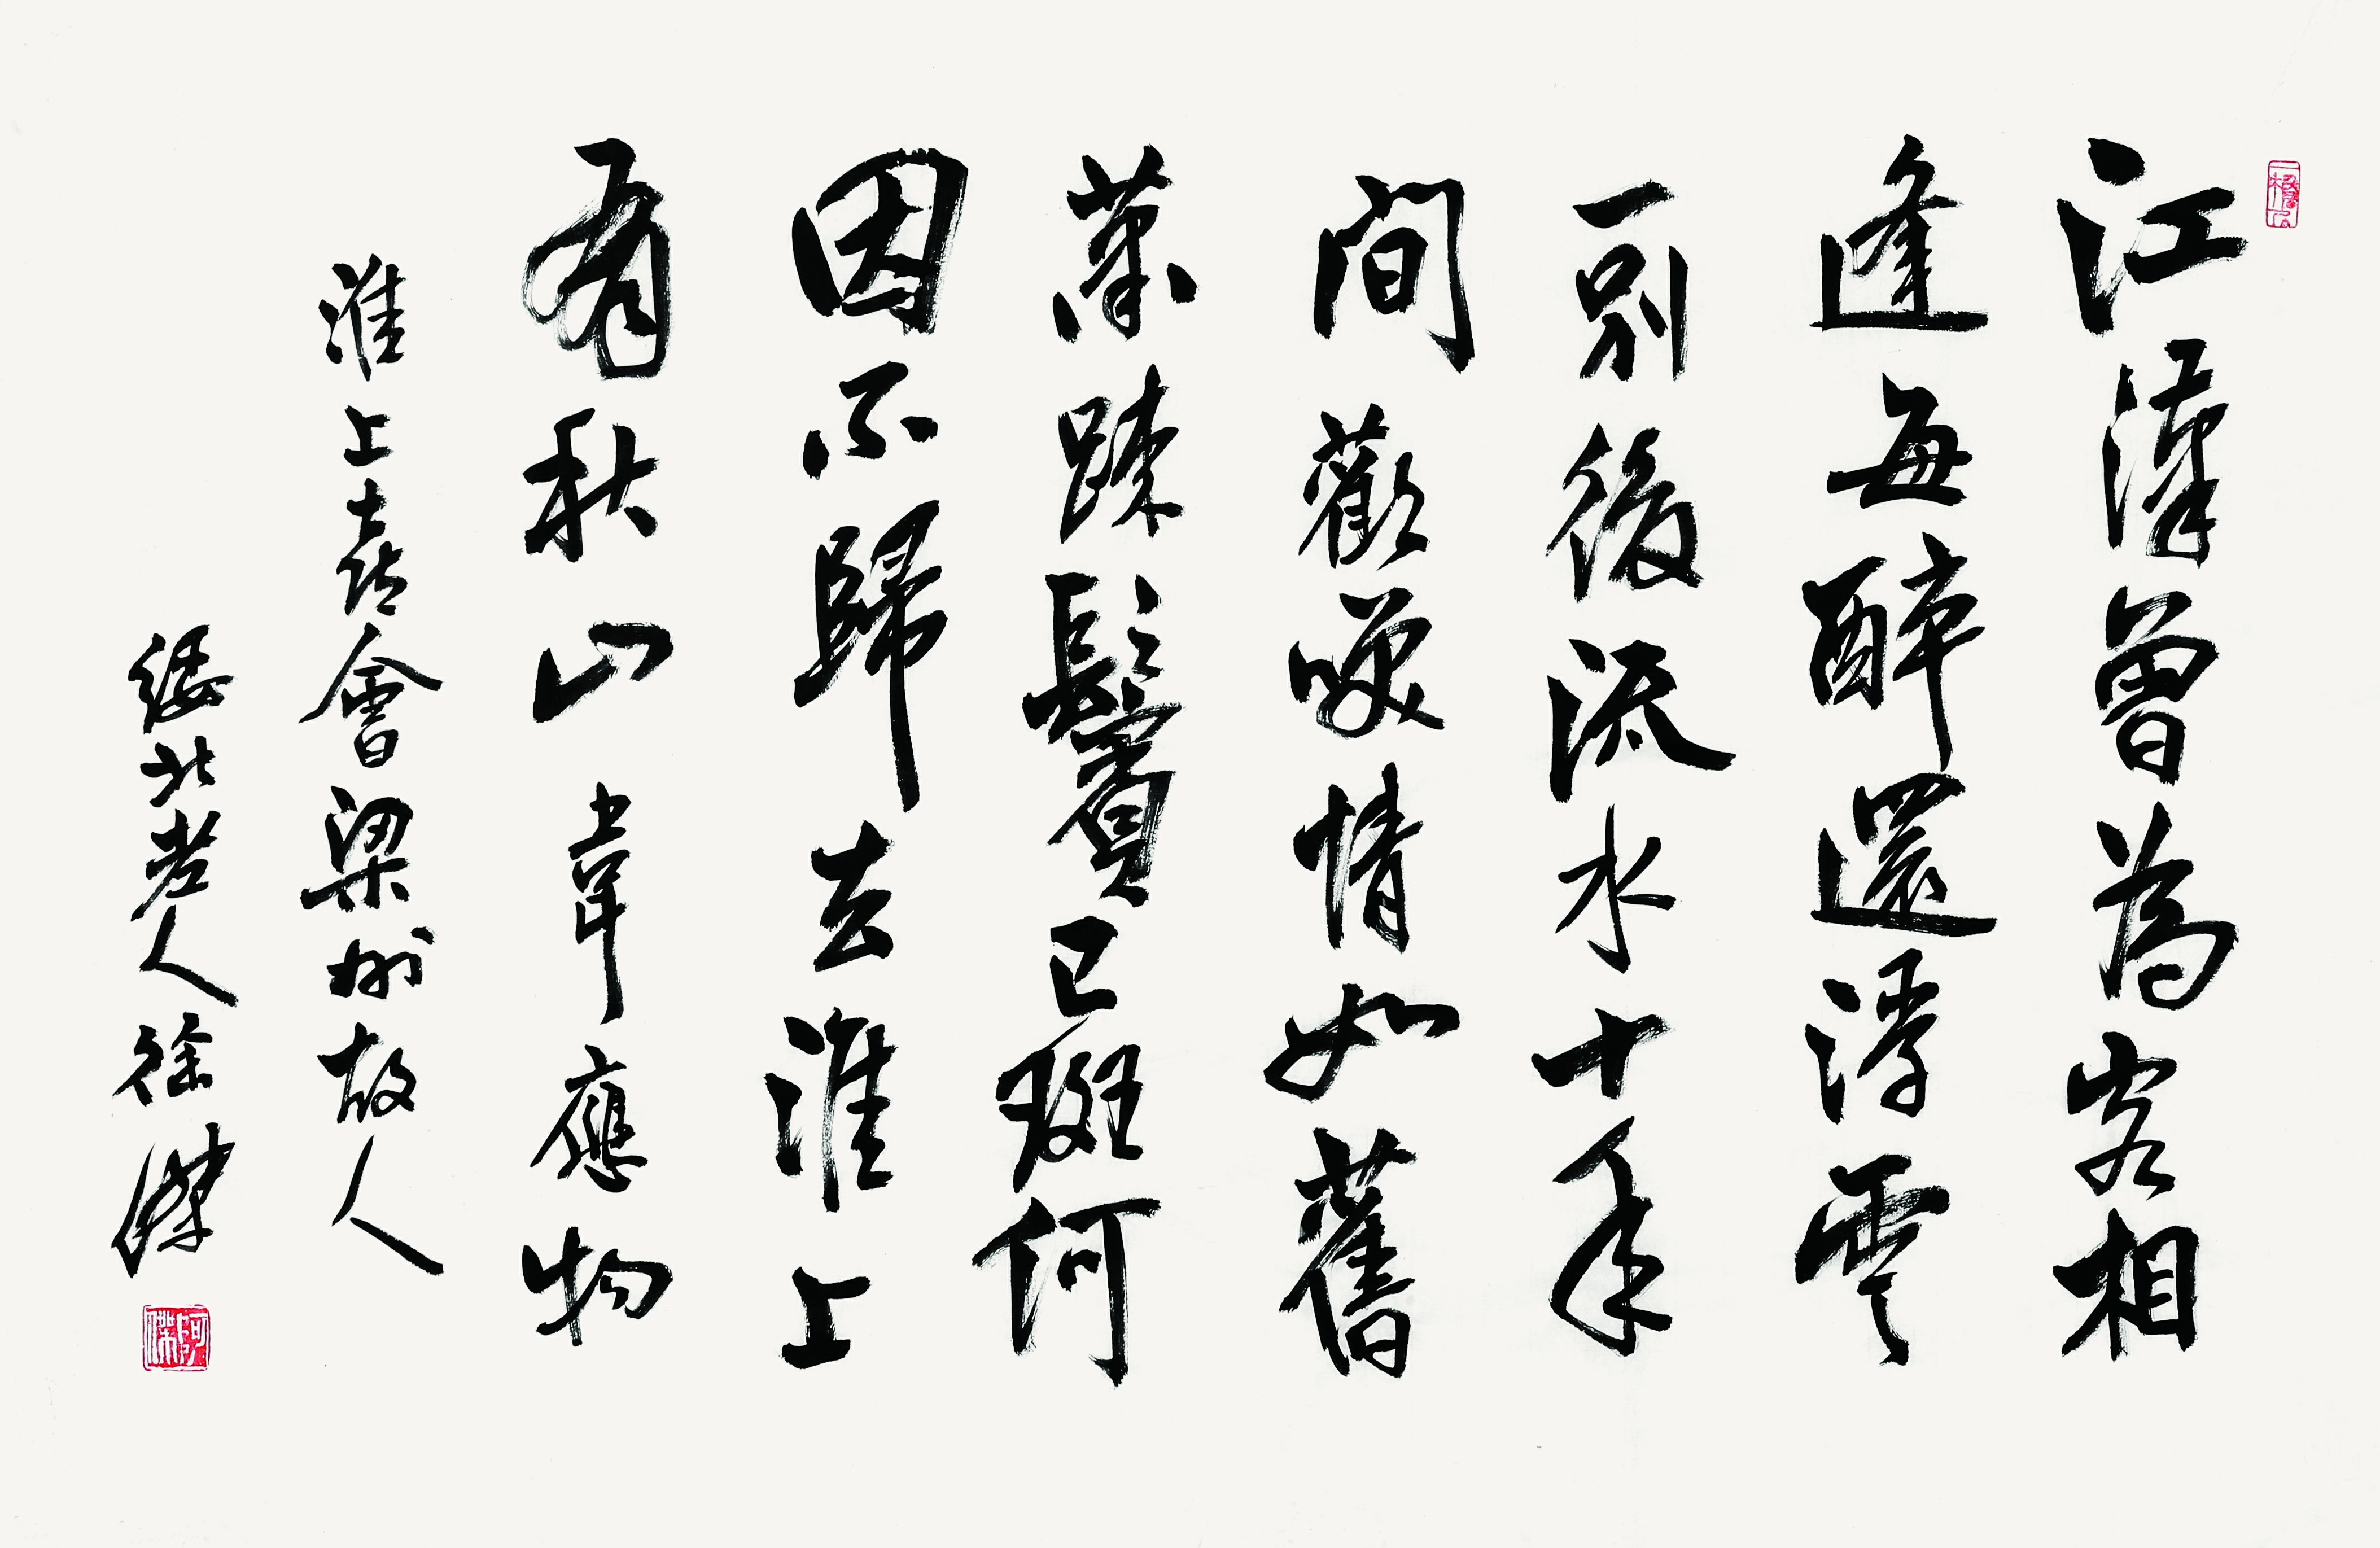 江漢曾為客相
逢每醉還浮雲
一別後流水十年
間歡咲情如舊
蕭踈鬢已斑何
因不歸去淮上
有秋山 韋應物
淮上喜會梁州故人
綏北老人徐傑
阿傑